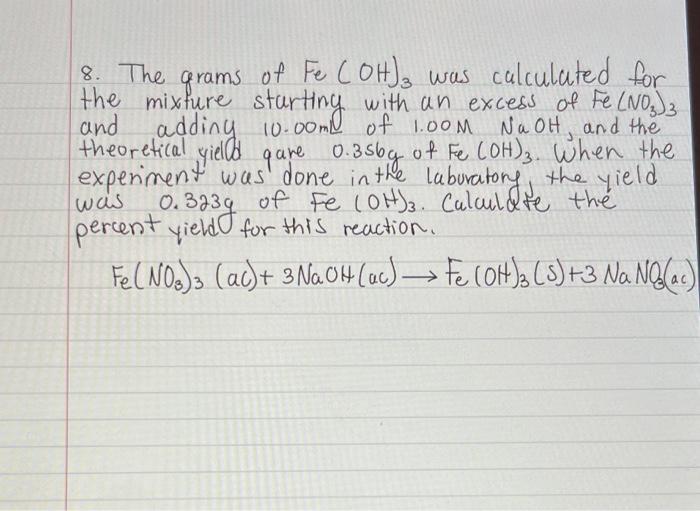 8. The grams of Fe(OH)₃ was calculated for
the mixture starting with an excess of Fe(NO₃)₃
and adding 10.00mL of 1.00M NaOH, and the
theoretical yield gave 0.356g of Fe(OH)₃. When the
experiment was done in the laboratory, the yield
was 0.323g of Fe(OH)₃. Calculate the
percent yield for this reaction.
Fe(NO₃)₃ (ac) + 3NaOH(ac) → Fe(OH)₃(s)+3 NaNO₃(ac)